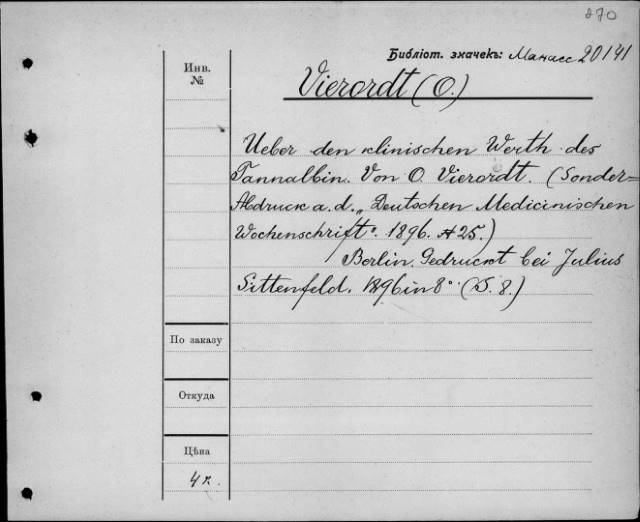 270
Библіот. значекъ: Манасс 20141
Инв.
№
Vierordt (O.)
Ueber den klinischen Werth des
Tannalbin. Von O. Vierordt. (Sonder=
Abdruck a. d. „Deutschen Medicinischen
Wochenschrift“. 1896. № 25.)
Berlin. Gedruckt bei Julius
Sittenfeld. 1896 in 8° (S. 8.)
По заказу
Откуда
Цѣна
4 к.